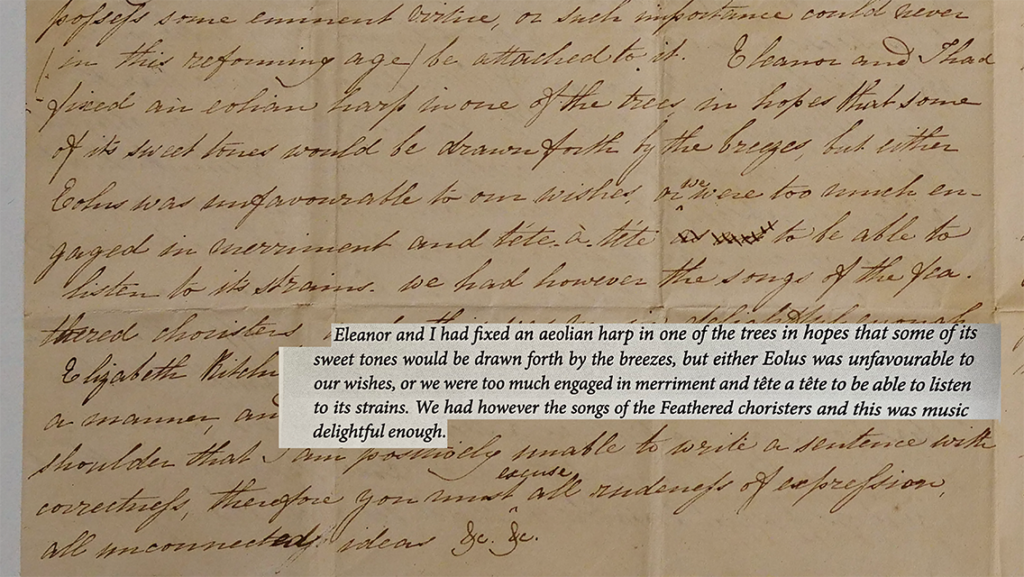 possess some eminent virtue, or such importance could never
(in this reforming age) be attached to it. Eleanor and I had
fixed an eolian harp in one of the trees, in hopes that some
of it's sweet tones would be drawn forth by the breezes, but either
Eolus was unfavourable to our wishes, or we were too much en-
gaged in merriment and tête à tête to be able to
listen to it's strains. we had however the songs of the fea-
thered choristers
Eleanor and I had fixed an aeolian harp in one of the trees in hopes that some of its
sweet tones would be drawn forth by the breezes, but either Eolus was unfavourable to
our wishes, or we were too much engaged in merriment and tête a tête to be able to listen
to its strains. We had however the songs of the Feathered choristers and this was music
delightful enough.
Elizabeth
a manner, an
shoulder that I am positively unable to write a sentence with
correctness, therefore you must excuse all rudeness of expression,
all unconnected ideas &c. &c.